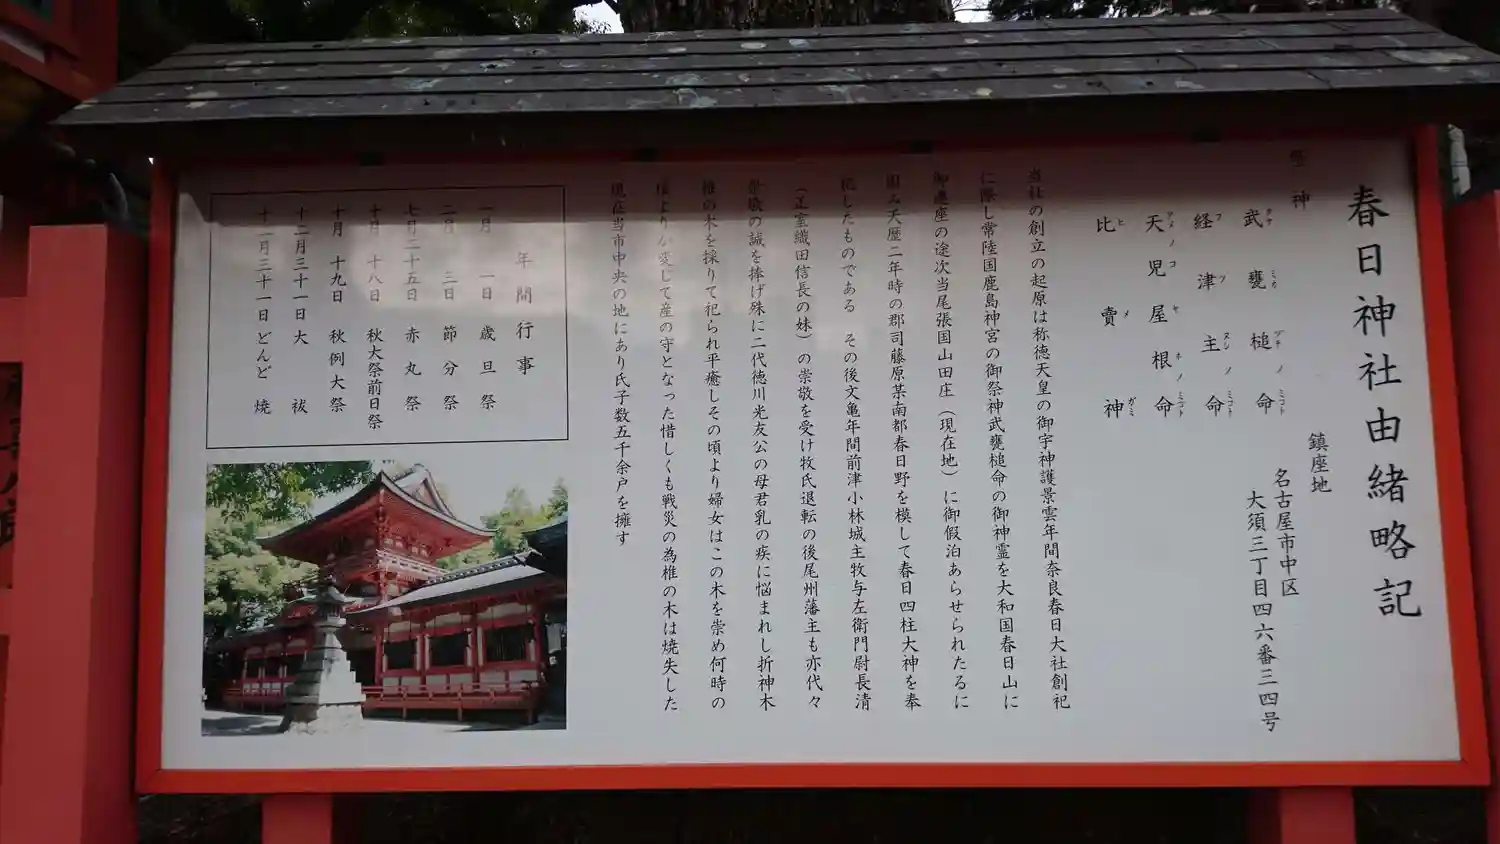 春日神社由緒略記
鎮座地
名古屋市中区
大須三丁目四六番三四号
祭神
武甕槌命
タケミカヅチノミコト
経津主命
フツヌシノミコト
天児屋根命
アメノコヤネノミコト
比賣神
ヒメガミ
当社の創立の起原は称徳天皇の御宇神護景雲年間奈良春日大社創祀
に際し常陸国鹿島神宮の御祭神武甕槌命の御神霊を大和国春日山に
御遷座の途次当尾張国山田庄（現在地）に御假泊あらせられたるに
因み天歴二年時の郡司藤原某南都春日野を模して春日四柱大神を奉
祀したものである その後文亀年間前津小林城主牧与左衛門尉長清
（正室織田信長の妹）の崇敬を受け牧氏退転の後尾州藩主も亦代々
敬の誠を捧げ殊に二代徳川光友公の母君乳の疾に悩まれし折神木
椎の木を採りて祀られ平癒しその頃より婦女はこの木を崇め何時の
頃よりか変じて産の守となった惜しくも戦災の為椎の木は焼失した
現在当市中央の地にあり氏子数五千余戸を擁す
年間行事
一月 一日 歳旦祭
二月 三日 節分祭
七月二十五日 赤丸祭
十月 十八日 秋大祭前日祭
十月 十九日 秋例大祭
十二月三十一日 大祓
十二月三十一日 どんど焼